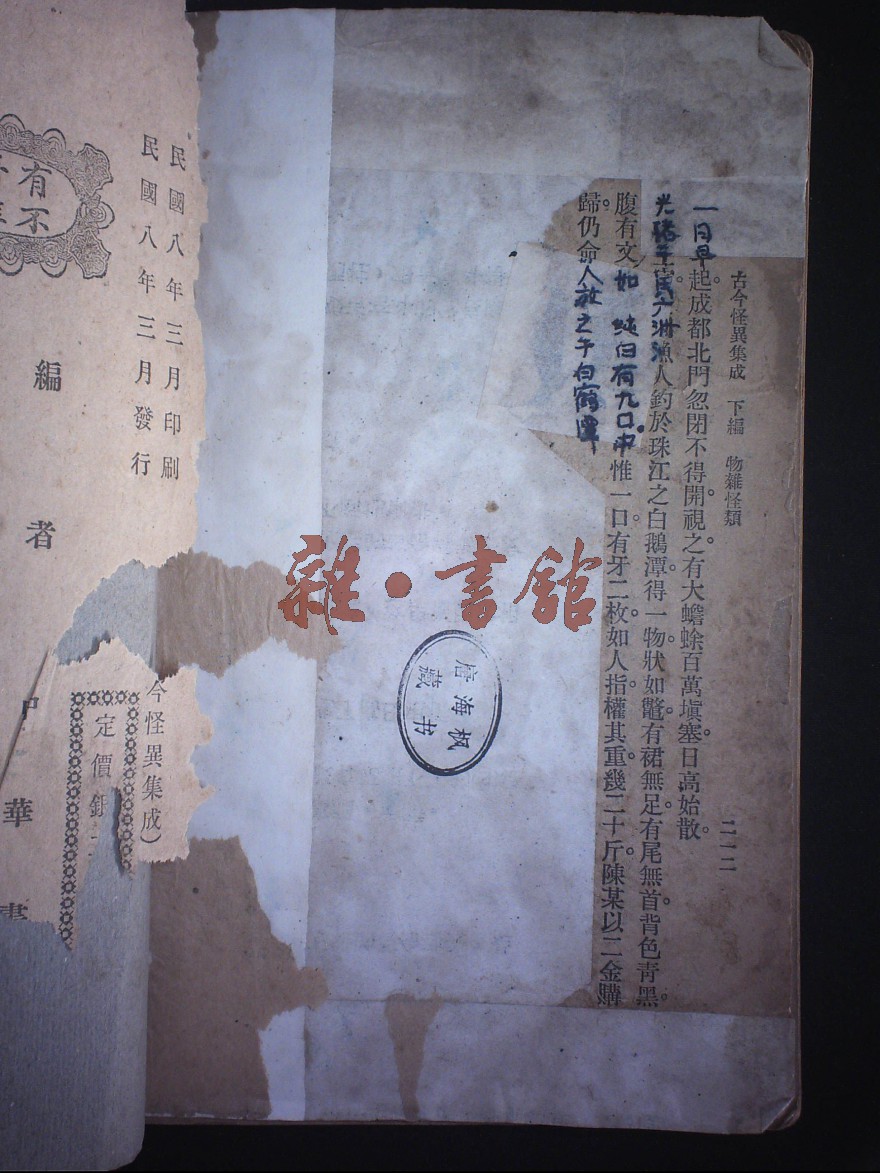 古今怪異集成 下編 物雜怪類 二一二
一日早起成都北門忽閉不得開視之有大蟾蜍百萬塡塞日高始散。
光緒壬寅廣州漁人釣於珠江之白鵝潭得一物狀如鼈有裙無足有尾無首背色青黑。
腹有文如 純白有九口中惟一口有牙二枚如人指權其重幾二十斤陳某以二金購
歸仍命人放之于白鵝潭
民國八年三月印刷
民國八年三月發行
有不
編者
中華書
今怪異集成）
定價銀
雜·書館
唐海枫
藏书